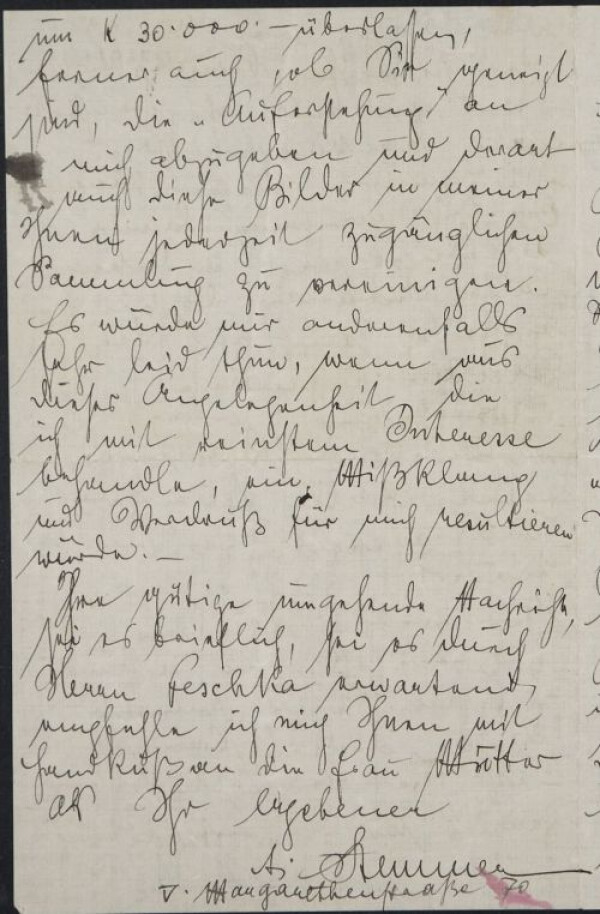 um K 30.000.– überlassen,
ferner auch, ob Sie geneigt
sind, die „Auferstehung" an
mich abzugeben und derart
auch diese Bilder in meiner
Ihnen jederzeit zugänglichen
Sammlung zu vereinigen.
Es würde mir anderenfalls
sehr leid thun, wenn aus
dieser Angelegenheit, die
ich mit reinstem Interesse
behandle, ein Mißklang
und Verdruß für mich resultieren
würde. –
Ihre gütige umgehende Nachricht,
sei es brieflich, sei es durch
Herrn Peschka erwartend
empfehle ich mich Ihnen mit
Handkuß an die Frau Mutter
als Ihr ergebener
V. Margarethenstraße 70